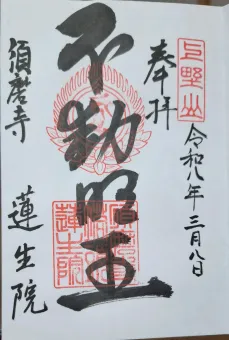 上野山
奉拝
令和八年三月八日
不動明王
須磨寺
蓮生院